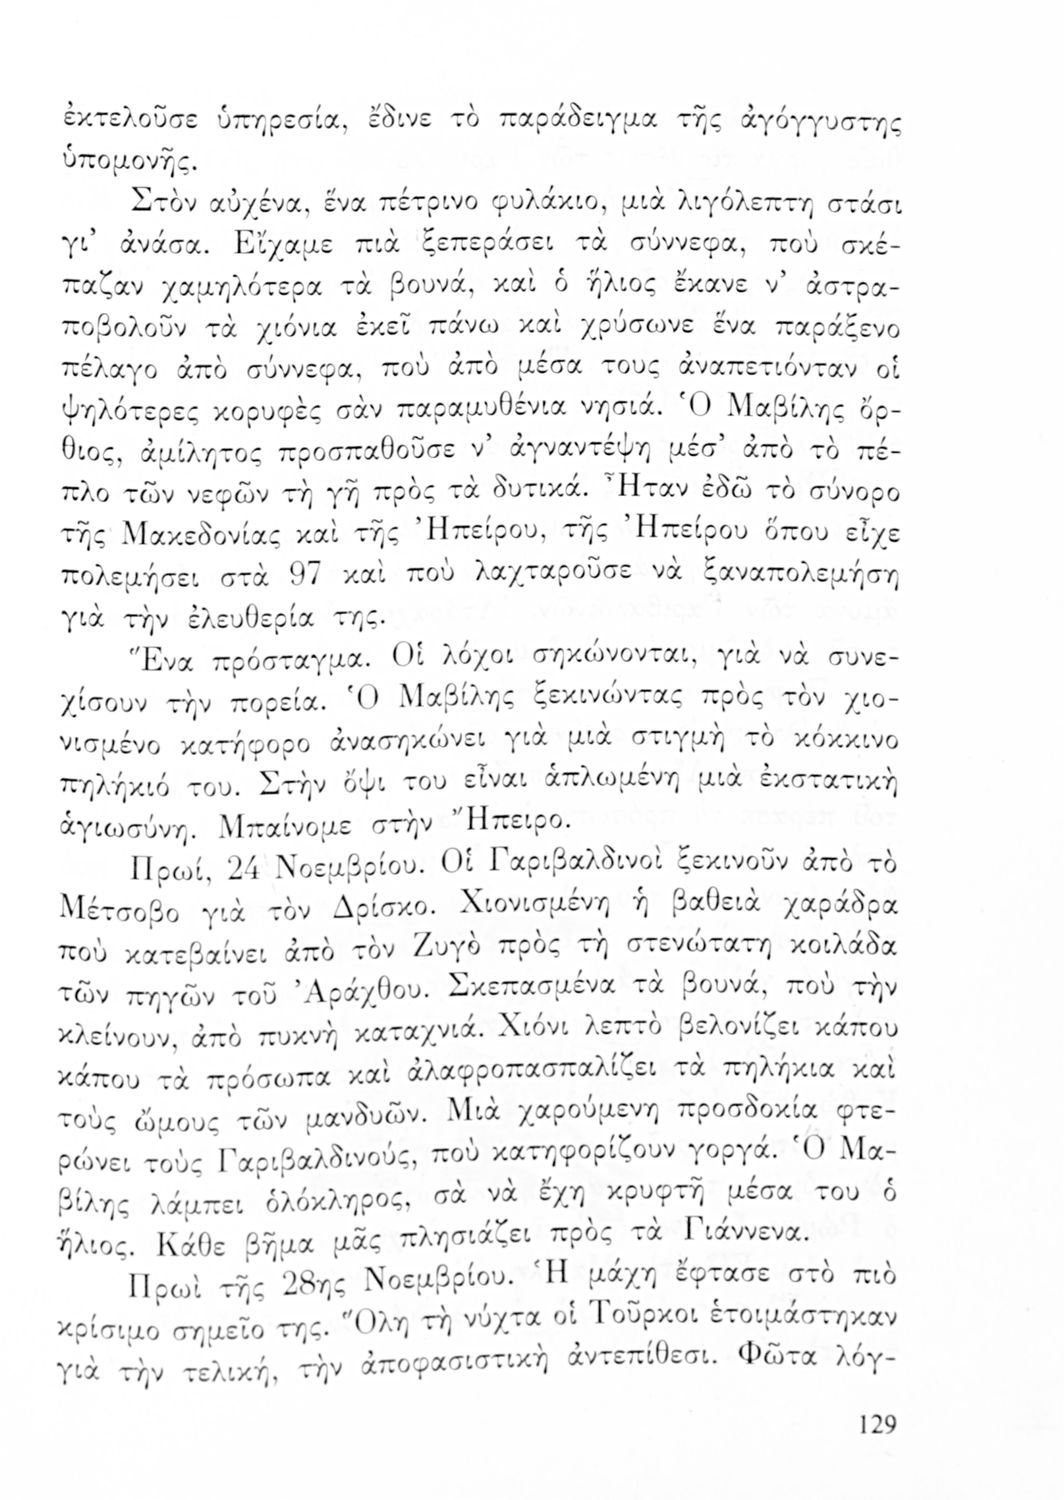 ἐκτελοῦσε ὑπηρεσία, ἔδινε τὸ παράδειγμα τῆς ἀγόγγυστης
ὑπομονῆς.
Στὸν αὐχένα, ἕνα πέτρινο φυλάκιο, μιὰ λιγόλεπτη στάσι
γι’ ἀνάσα. Εἴχαμε πιὰ ξεπεράσει τὰ σύννεφα, ποὺ σκέ-
παζαν χαμηλότερα τὰ βουνά, καὶ ὁ ἥλιος ἔκανε ν’ ἀστρα-
ποβολοῦν τὰ χιόνια ἐκεῖ πάνω καὶ χρύσωνε ἕνα παράξενο
πέλαγο ἀπὸ σύννεφα, ποὺ ἀπὸ μέσα τους ἀναπετιόνταν οἱ
ψηλότερες κορυφὲς σὰν παραμυθένια νησιά. Ὁ Μαβίλης ὄρ-
θιος, ἀμίλητος προσπαθοῦσε ν’ ἀγναντέψη μέσ’ ἀπὸ τὸ πέ-
πλο τῶν νεφῶν τὴ γῆ πρὸς τὰ δυτικά. Ἦταν ἐδῶ τὸ σύνορο
τῆς Μακεδονίας καὶ τῆς Ἠπείρου, τῆς Ἠπείρου ὅπου εἶχε
πολεμήσει στὰ 97 καὶ ποὺ λαχταροῦσε νὰ ξαναπολεμήση
γιὰ τὴν ἐλευθερία της.
Ἕνα πρόσταγμα. Οἱ λόχοι σηκώνονται, γιὰ νὰ συνε-
χίσουν τὴν πορεία. Ὁ Μαβίλης ξεκινώντας πρὸς τὸν χιο-
νισμένο κατήφορο ἀνασηκώνει γιὰ μιὰ στιγμὴ τὸ κόκκινο
πηλήκιό του. Στὴν ὄψι του εἶναι ἁπλωμένη μιὰ ἐκστατικὴ
ἁγιωσύνη. Μπαίνομε στὴν Ἤπειρο.
Πρωί, 24 Νοεμβρίου. Οἱ Γαριβαλδινοὶ ξεκινοῦν ἀπὸ τὸ
Μέτσοβο γιὰ τὸν Δρίσκο. Χιονισμένη ἡ βαθειὰ χαράδρα
ποὺ κατεβαίνει ἀπὸ τὸν Ζυγὸ πρὸς τὴ στενώτατη κοιλάδα
τῶν πηγῶν τοῦ Ἀράχθου. Σκεπασμένα τὰ βουνά, ποὺ τὴν
κλείνουν, ἀπὸ πυκνὴ καταχνιά. Χιόνι λεπτὸ βελονίζει κάπου
κάπου τὰ πρόσωπα καὶ ἀλαφροπασπαλίζει τὰ πηλήκια καὶ
τοὺς ὤμους τῶν μανδυῶν. Μιὰ χαρούμενη προσδοκία φτε-
ρώνει τοὺς Γαριβαλδινούς, ποὺ κατηφορίζουν γοργά. Ὁ Μα-
βίλης λάμπει ὁλόκληρος, σὰ νὰ ἔχη κρυφτῆ μέσα του ὁ
ἥλιος. Κάθε βῆμα μᾶς πλησιάζει πρὸς τὰ Γιάννενα.
Πρωὶ τῆς 28ης Νοεμβρίου. Ἡ μάχη ἔφτασε στὸ πιὸ
κρίσιμο σημεῖο της. Ὅλη τὴ νύχτα οἱ Τοῦρκοι ἑτοιμάστηκαν
γιὰ τὴν τελική, τὴν ἀποφασιστικὴ ἀντεπίθεσι. Φῶτα λόγ-
129